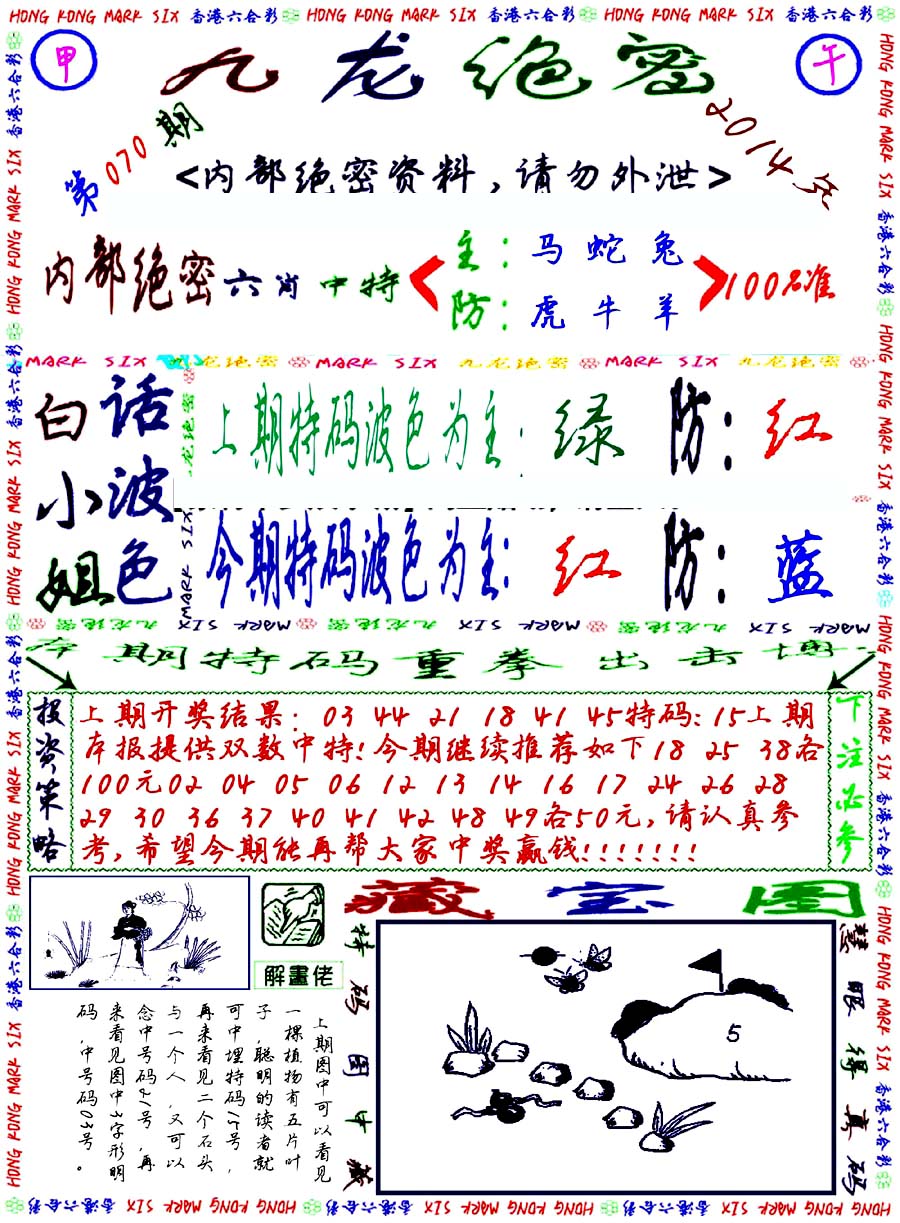 HONG KONG MARK SIX 香港六合彩 HONG KONG MARK SIX 香港六合彩 HONG KONG MARK SIX 香港六合彩
甲
九龙绝密
午
第070期
2014年
<内部绝密资料,请勿外泄>
内部绝密六肖中特
主:马蛇兔
防:虎牛羊
100%准
MARK SIX 九龙绝密 MARK SIX 九龙绝密 MARK SIX 九龙绝密
白小姐
话波色
上期特码波色为主:绿 防:红
今期特码波色为主:红 防:蓝
九龙绝密 MARK SIX 九龙绝密 MARK SIX 九龙绝密 MARK SIX
本期特码重拳出击博
投资策略
上期开奖结果:03 44 21 18 41 45特码:15上期
本报提供双数中特!今期继续推荐如下18 25 38各
100元02 04 05 06 12 13 14 16 17 24 26 28
29 30 36 37 40 41 42 48 49各50元,请认真参
考,希望今期能再帮大家中奖赢钱!!!!!!!
下注必参
解畫佬
藏宝图
特码图中藏
慧眼得真码
5
上期图中可以看见
一棵植物有五片叶
子,聪明的读者就
可中埋特码15号,
再来看见二个石头
与一个人,又可以
念中号码21号,再
来看见图中3字形明
码,中号码03号。
HONG KONG MARK SIX 香港六合彩 HONG KONG MARK SIX 香港六合彩 HONG KONG MARK SIX 香港六合彩